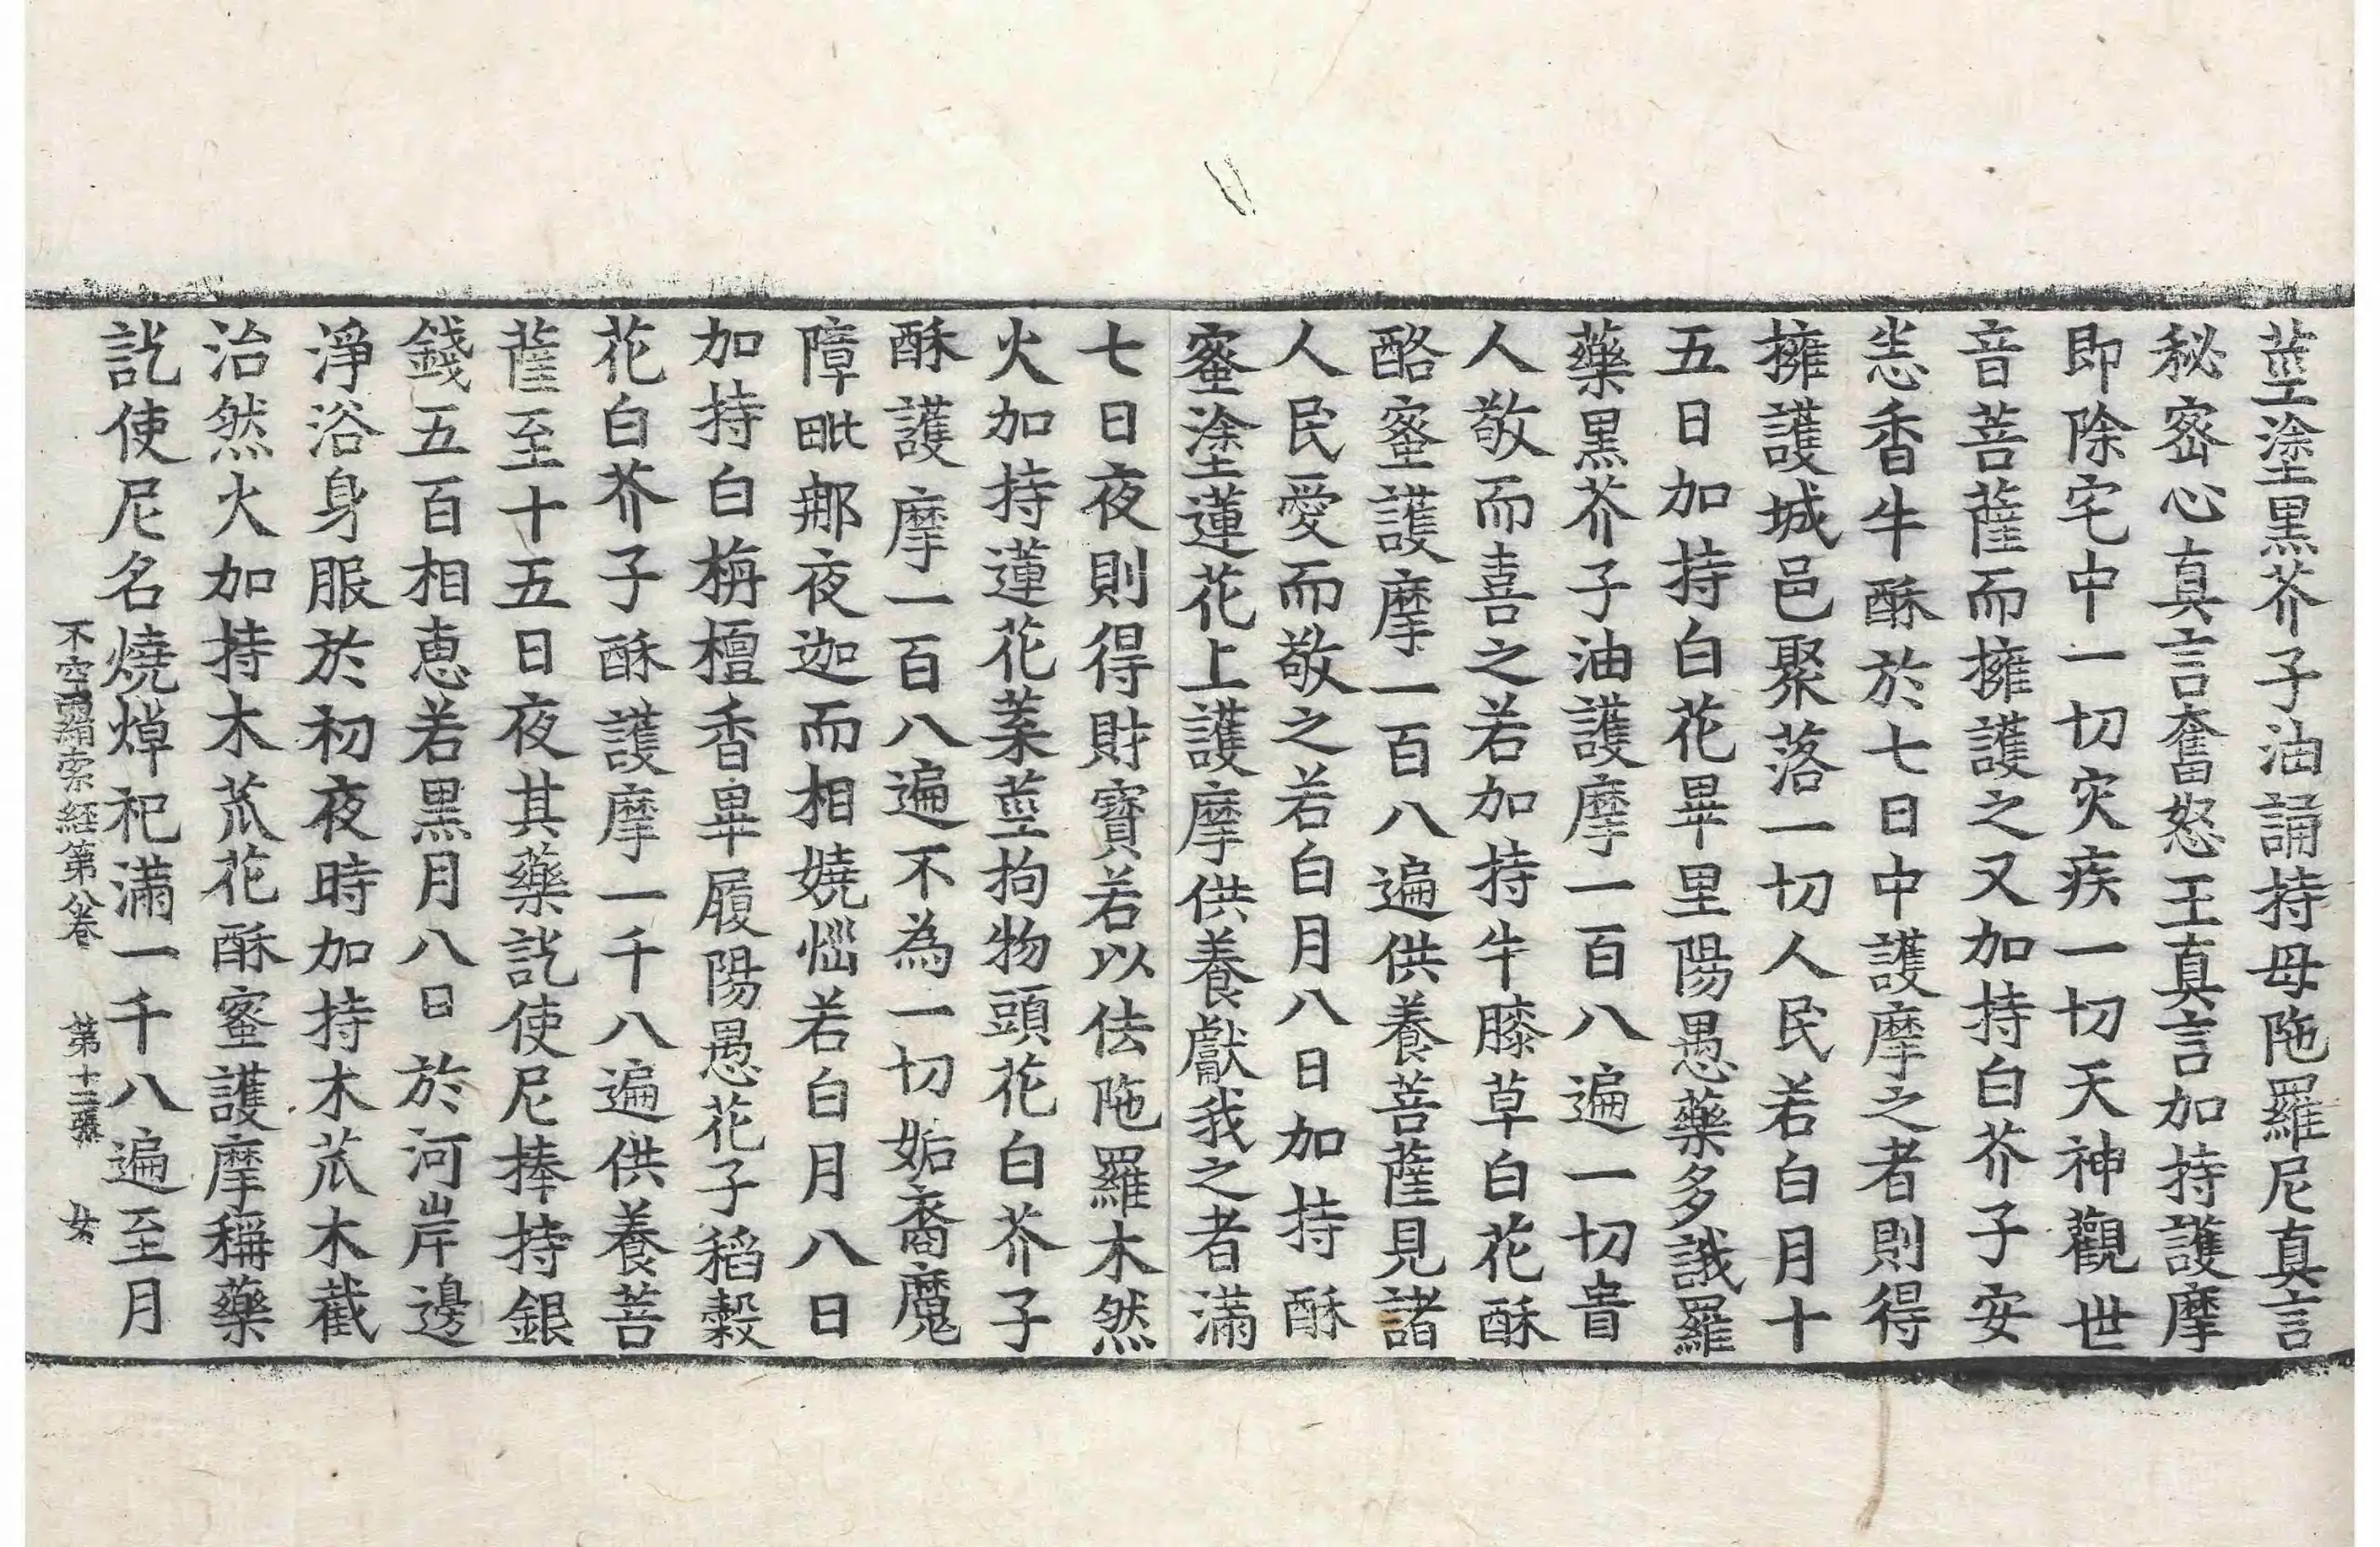 莖塗黑芥子油誦持母陁羅尼真言
秘密心真言奮怒王真言加持護摩
即除宅中一切灾疾一切天神觀世
音菩薩而擁護之又加持白芥子安
悉香牛酥於七日中護摩之者則得
擁護城邑聚落一切人民若白月十
五日加持白花畢里陽愚藥多誐羅
藥黑芥子油護摩一百八遍一切貴
人敬而喜之若加持牛膝草白花酥
酪蜜護摩一百八遍供養菩薩見諸
人民愛而敬之若白月八日加持酥
蜜塗蓮花上護摩供養獻我之者滿
七日夜則得財寶若以佉陁羅木然
火加持蓮花葉莖拘物頭花白芥子
酥護摩一百八遍不為一切姤裔魔
障毗那夜迦而相嬈惱若白月八日
加持白栴檀香畢履陽愚花子稻穀
花白芥子酥護摩一千八遍供養菩
薩至十五日夜其藥訖使尼捧持銀
錢五百相惠若黑月八日於河岸邊
淨浴身服於初夜時加持木苽木截
治然火加持木苽花酥蜜護摩稱藥
訖使尼名燒焯祀滿一千八遍至月
不空羂索経第八卷 第十二張 女